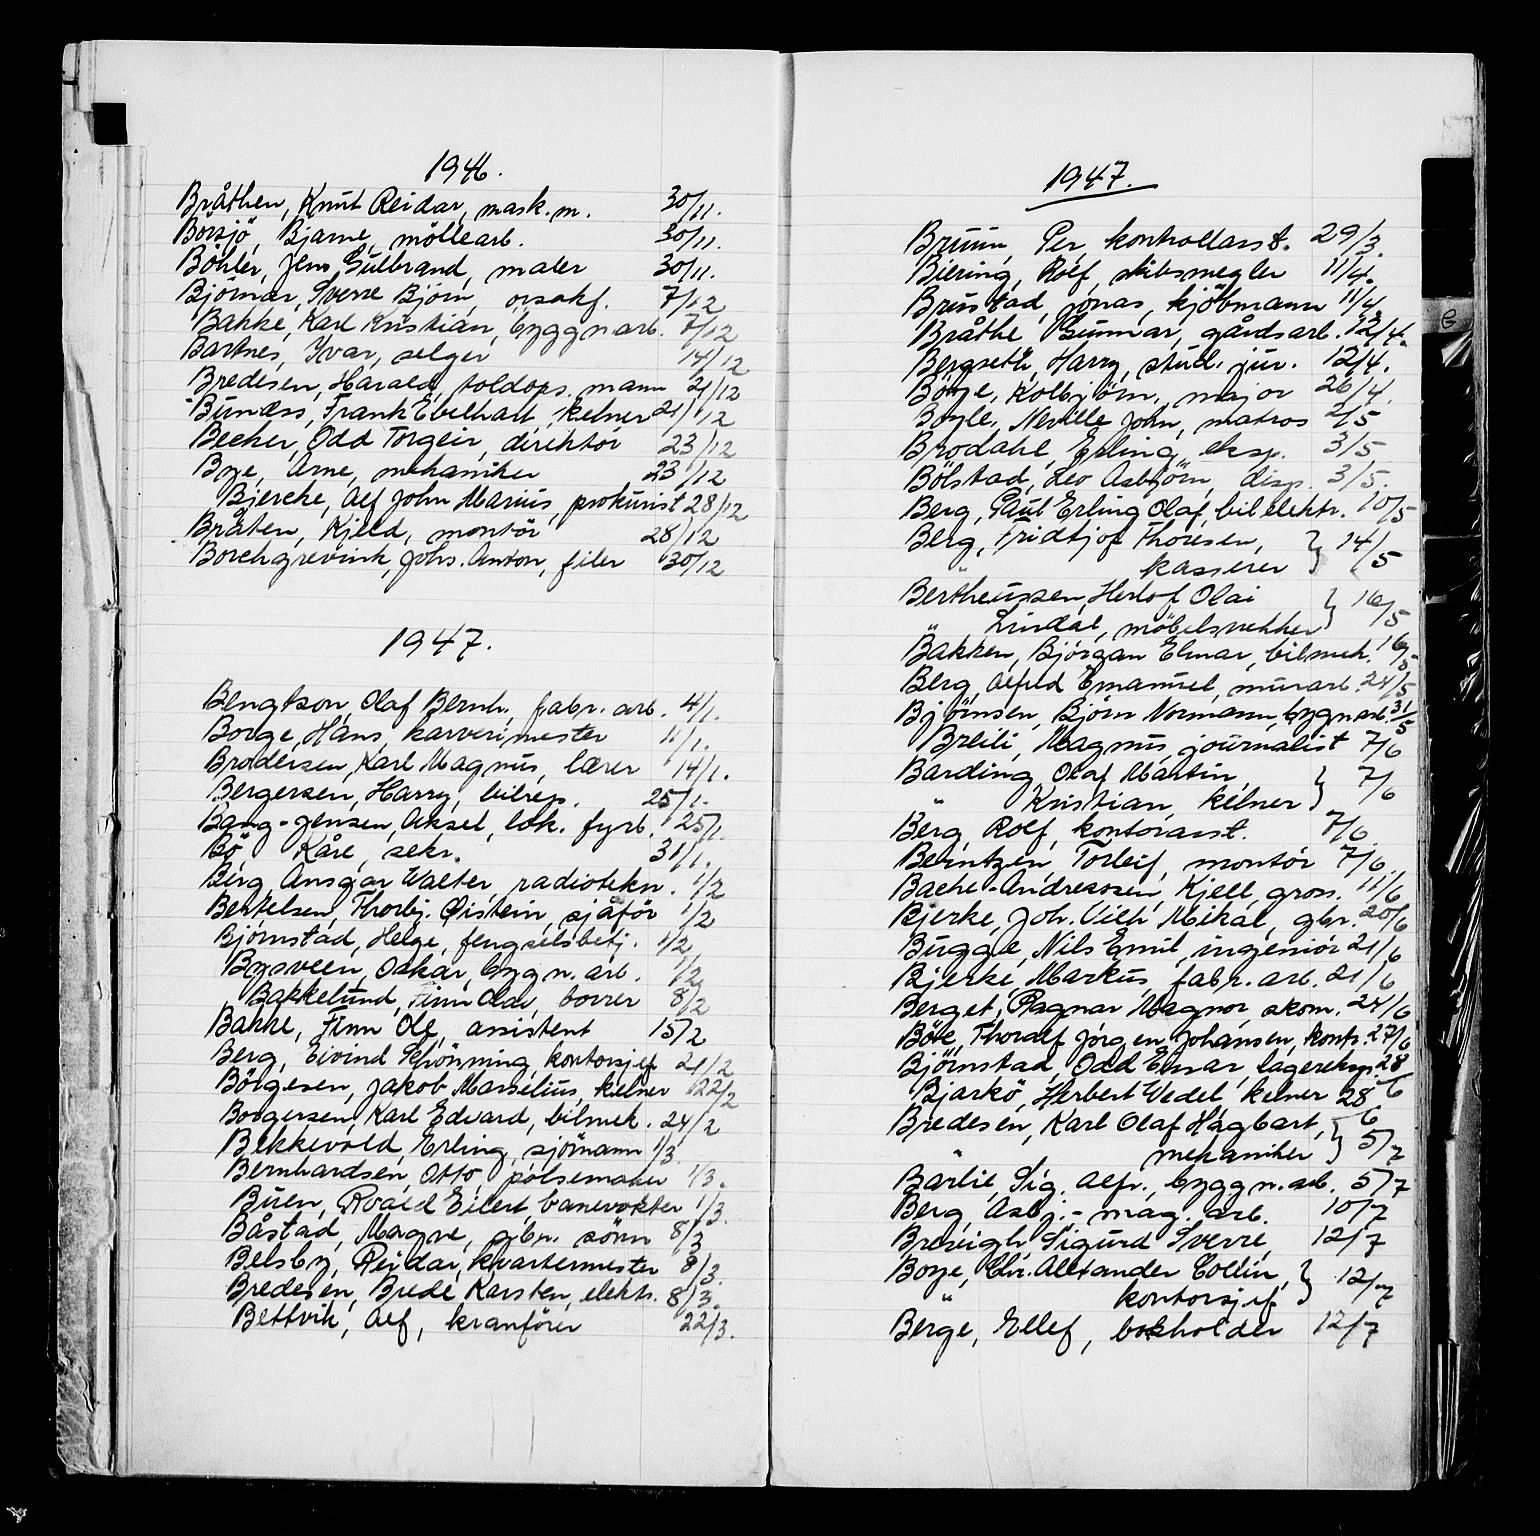 1946.
Bråthen, Knut Reidar, mask.m. 30/11.
Borsjö, Bjarne, möllearb. 30/11.
Böhler, Jens Gulbrand, maler 30/11.
Bjömar, Sverre Björn, orsakf. 7/12
Bakke, Karl Kristian, byggn arb. 7/12
Bartnes, Ivar, selger 14/12
Bredesen, Harald, toldops. mann 21/12
Bundss, Frank Evelhart, kelner 21/12
Becher, Odd Torgeir, direktör 23/12
Bye, Arne, mekaniker 23/12
Bjercke, Alf John Marius, prokurist 28/12
Bråten, Kjeld, montör 28/12
Borchgrevink, Johs. Anton, filer 30/12
1947.
Bengtson, Olaf Bernh., fabr. arb. 4/1.
Borge, Hans, karverimester 11/1.
Brodersen, Karl Magnus, lærer 14/1.
Bergersen, Harry, bilrep. 25/1.
Bang-Jensen, Aksel, lok. fyrb. 25/1.
Bö, Kåre, sekr. 31/1.
Berg, Ansgar Walter, radiotekn. 1/2
Bertelsen, Thorbj. Øistein, sjåför 1/2
Bjömstad, Helge, fengselsbetj. 1/2
Bysveen, Oskar, byggn. arb. 1/2
Bakkelund, Finn Odd, borrer 8/2
Bakke, Finn Olf, assistent 15/2
Berg, Eivind Schönning, kontorsjef 21/2
Börgesen, Jakob Marselius, kelner 22/2
Borgersen, Karl Edvard, bilmek. 24/2
Bekkevold, Erling, sjömann 1/3
Bernhardsen, Otto, pölsemaker 1/3.
Buen, Roald Eilert, banevokter 1/3
Båstad, Magne, gbr. sönn 8/3
Belsby, Reidar, kvartermester 8/3.
Bredesen, Brede Karsten, elektr. 8/3.
Bettvik, Alf, kranförer 22/3.
1947.
Bruun, Per, kontrollasst. 29/3.
Biering, Rolf, skibsmegler 11/4.
Brustad, Jonas, kjöbmann 11/4
Bråthe Gunnar, gårdsarb. 12/4.
Bergseth, Harry, stud. jur. 12/4.
Böye, Kolbjörn, major 26/4.
Boyle, Neville John, matros 2/5
Brodahl, Erling, eksp. 3/5
Bölstad, Leo Asbjörn, disp. 3/5.
Berg, Paul Erling Olaf, bilelektr. 10/5
Berg, Fridtjof Thoresen, } 14/5
" kasserer
Bertheussen, Herlof Olai } 16/5
" Lindal, möbelsnekker
Bakken, Björgan Elmar, bilmek. 16/5
Berg, Alfred Emanuel, murarb. 24/5
Björnsen, Björn Normann, bygn arb. 31/5
Breili, Magnus, journalist 7/6
Barding, Olaf Martin, } 7/6
" Kristian, kelner
Berg, Rolf, kontorasst. 7/6
Berntzen, Torleif, montör 7/6.
Bache-Andreassen, Kjell, gros. 11/6
Bjerke, Joh. Vilh. Mikal, gbr. 20/6
Bugge, Nils Emil, ingeniör 21/6
Bjerke, Markus, fabr. arb. 21/6
Berget, Ragnar Magnor, skom. 24/6
Bök, Thoralf Jörgen Johansen, kontr. 27/6
Björnstad, Odd Einar, lagereksp. 28/6
Bjarkö, Herbert Wedel, kelner 28/6
Bredesen, Karl Olaf Hagbart, } 5/7
" mekaniker
Barlie, Sig. Alfr., byggn. arb. 5/7
Berg, Asbj.- mag. arb. 10/7
Breveigh, Sigurd Sverre, 12/7
Boye, Chr. Alexander Collin, } 12/7
" kontorsjef
Berge, Ellef, bokholder 12/7
B